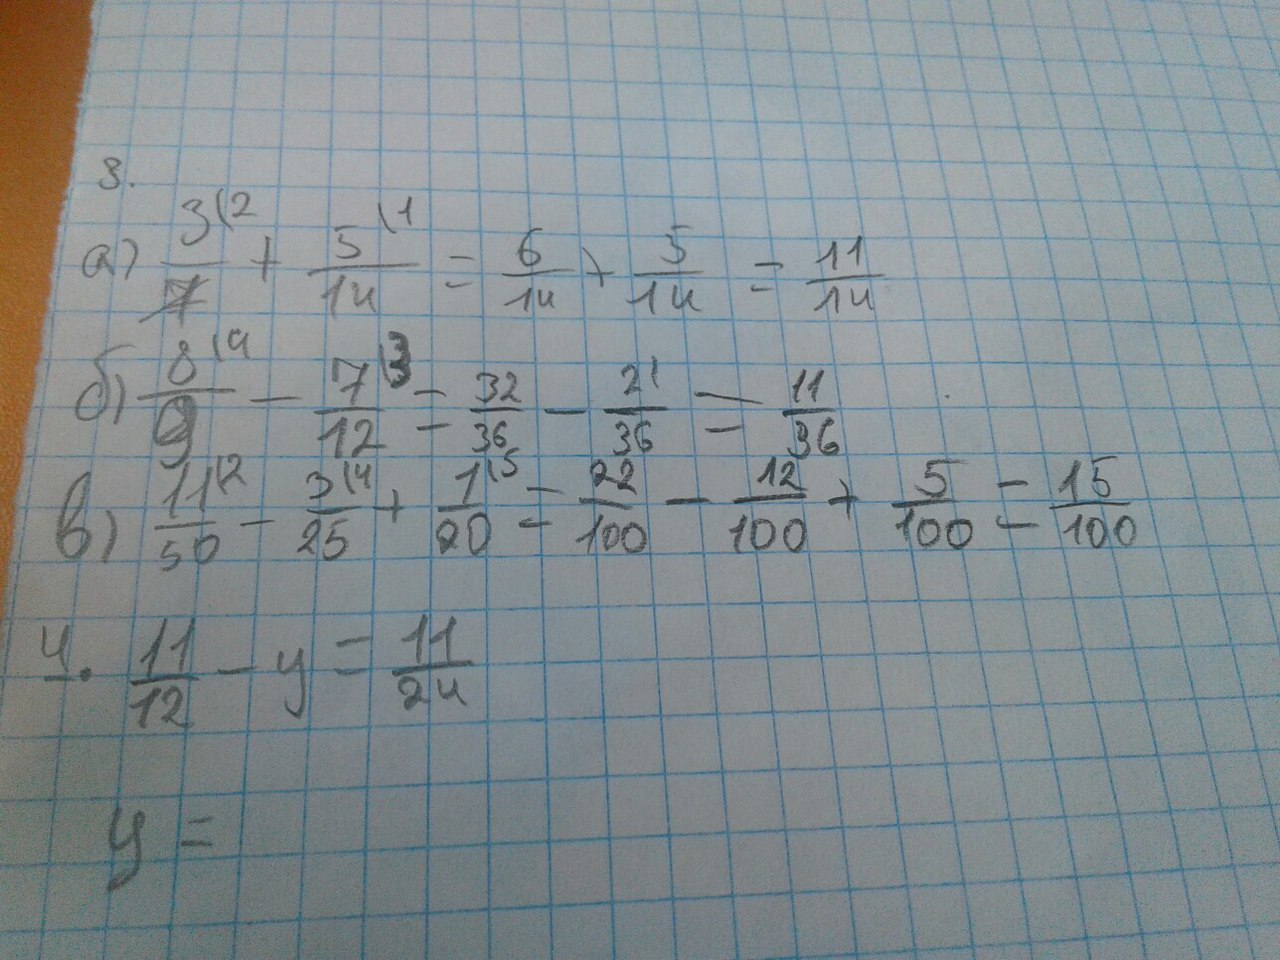 3.
а) 3\2/7 + 5\1/14 = 6/14 + 5/14 = 11/14
б) 8\4/9 - 7\3/12 = 32/36 - 21/36 = 11/36
в) 11\2/50 - 3\4/25 + 1\5/20 = 22/100 - 12/100 + 5/100 = 15/100
4. 11/12 - y = 11/24
y =